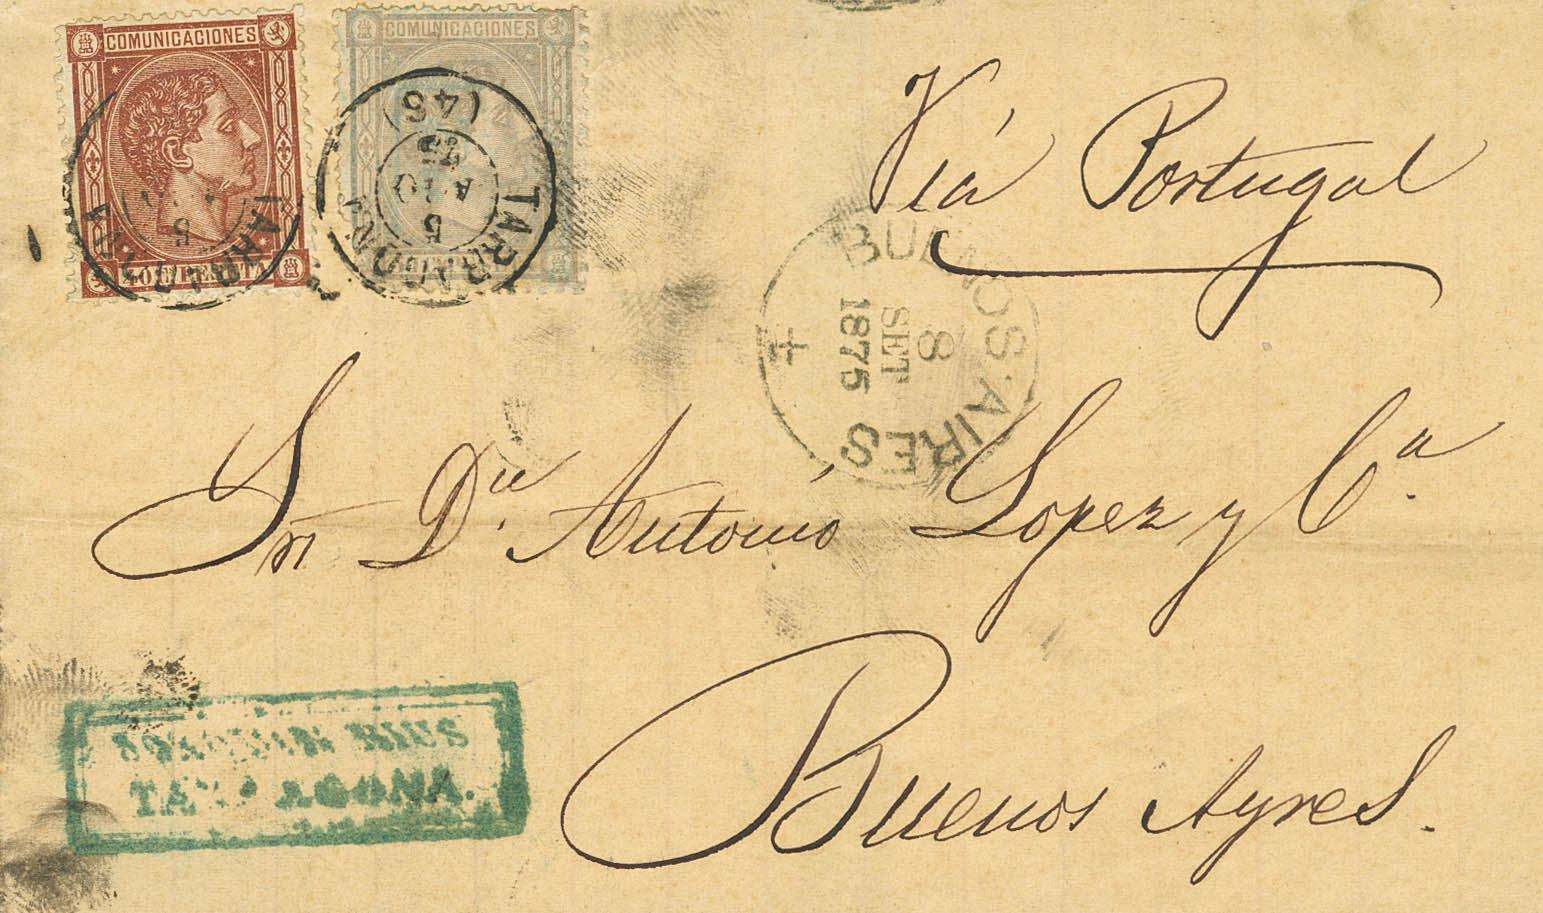 COMUNICACIONES
COMUNICACIONES
TARRAGONA
5
AGO
75
(46)
TARRAGONA
5
Viá Portugal
BUENOS AIRES
8
SET
1875
Sr. Dn. Antonio Lopez y Ca.
Buenos Ayres.
TARRAGONA.